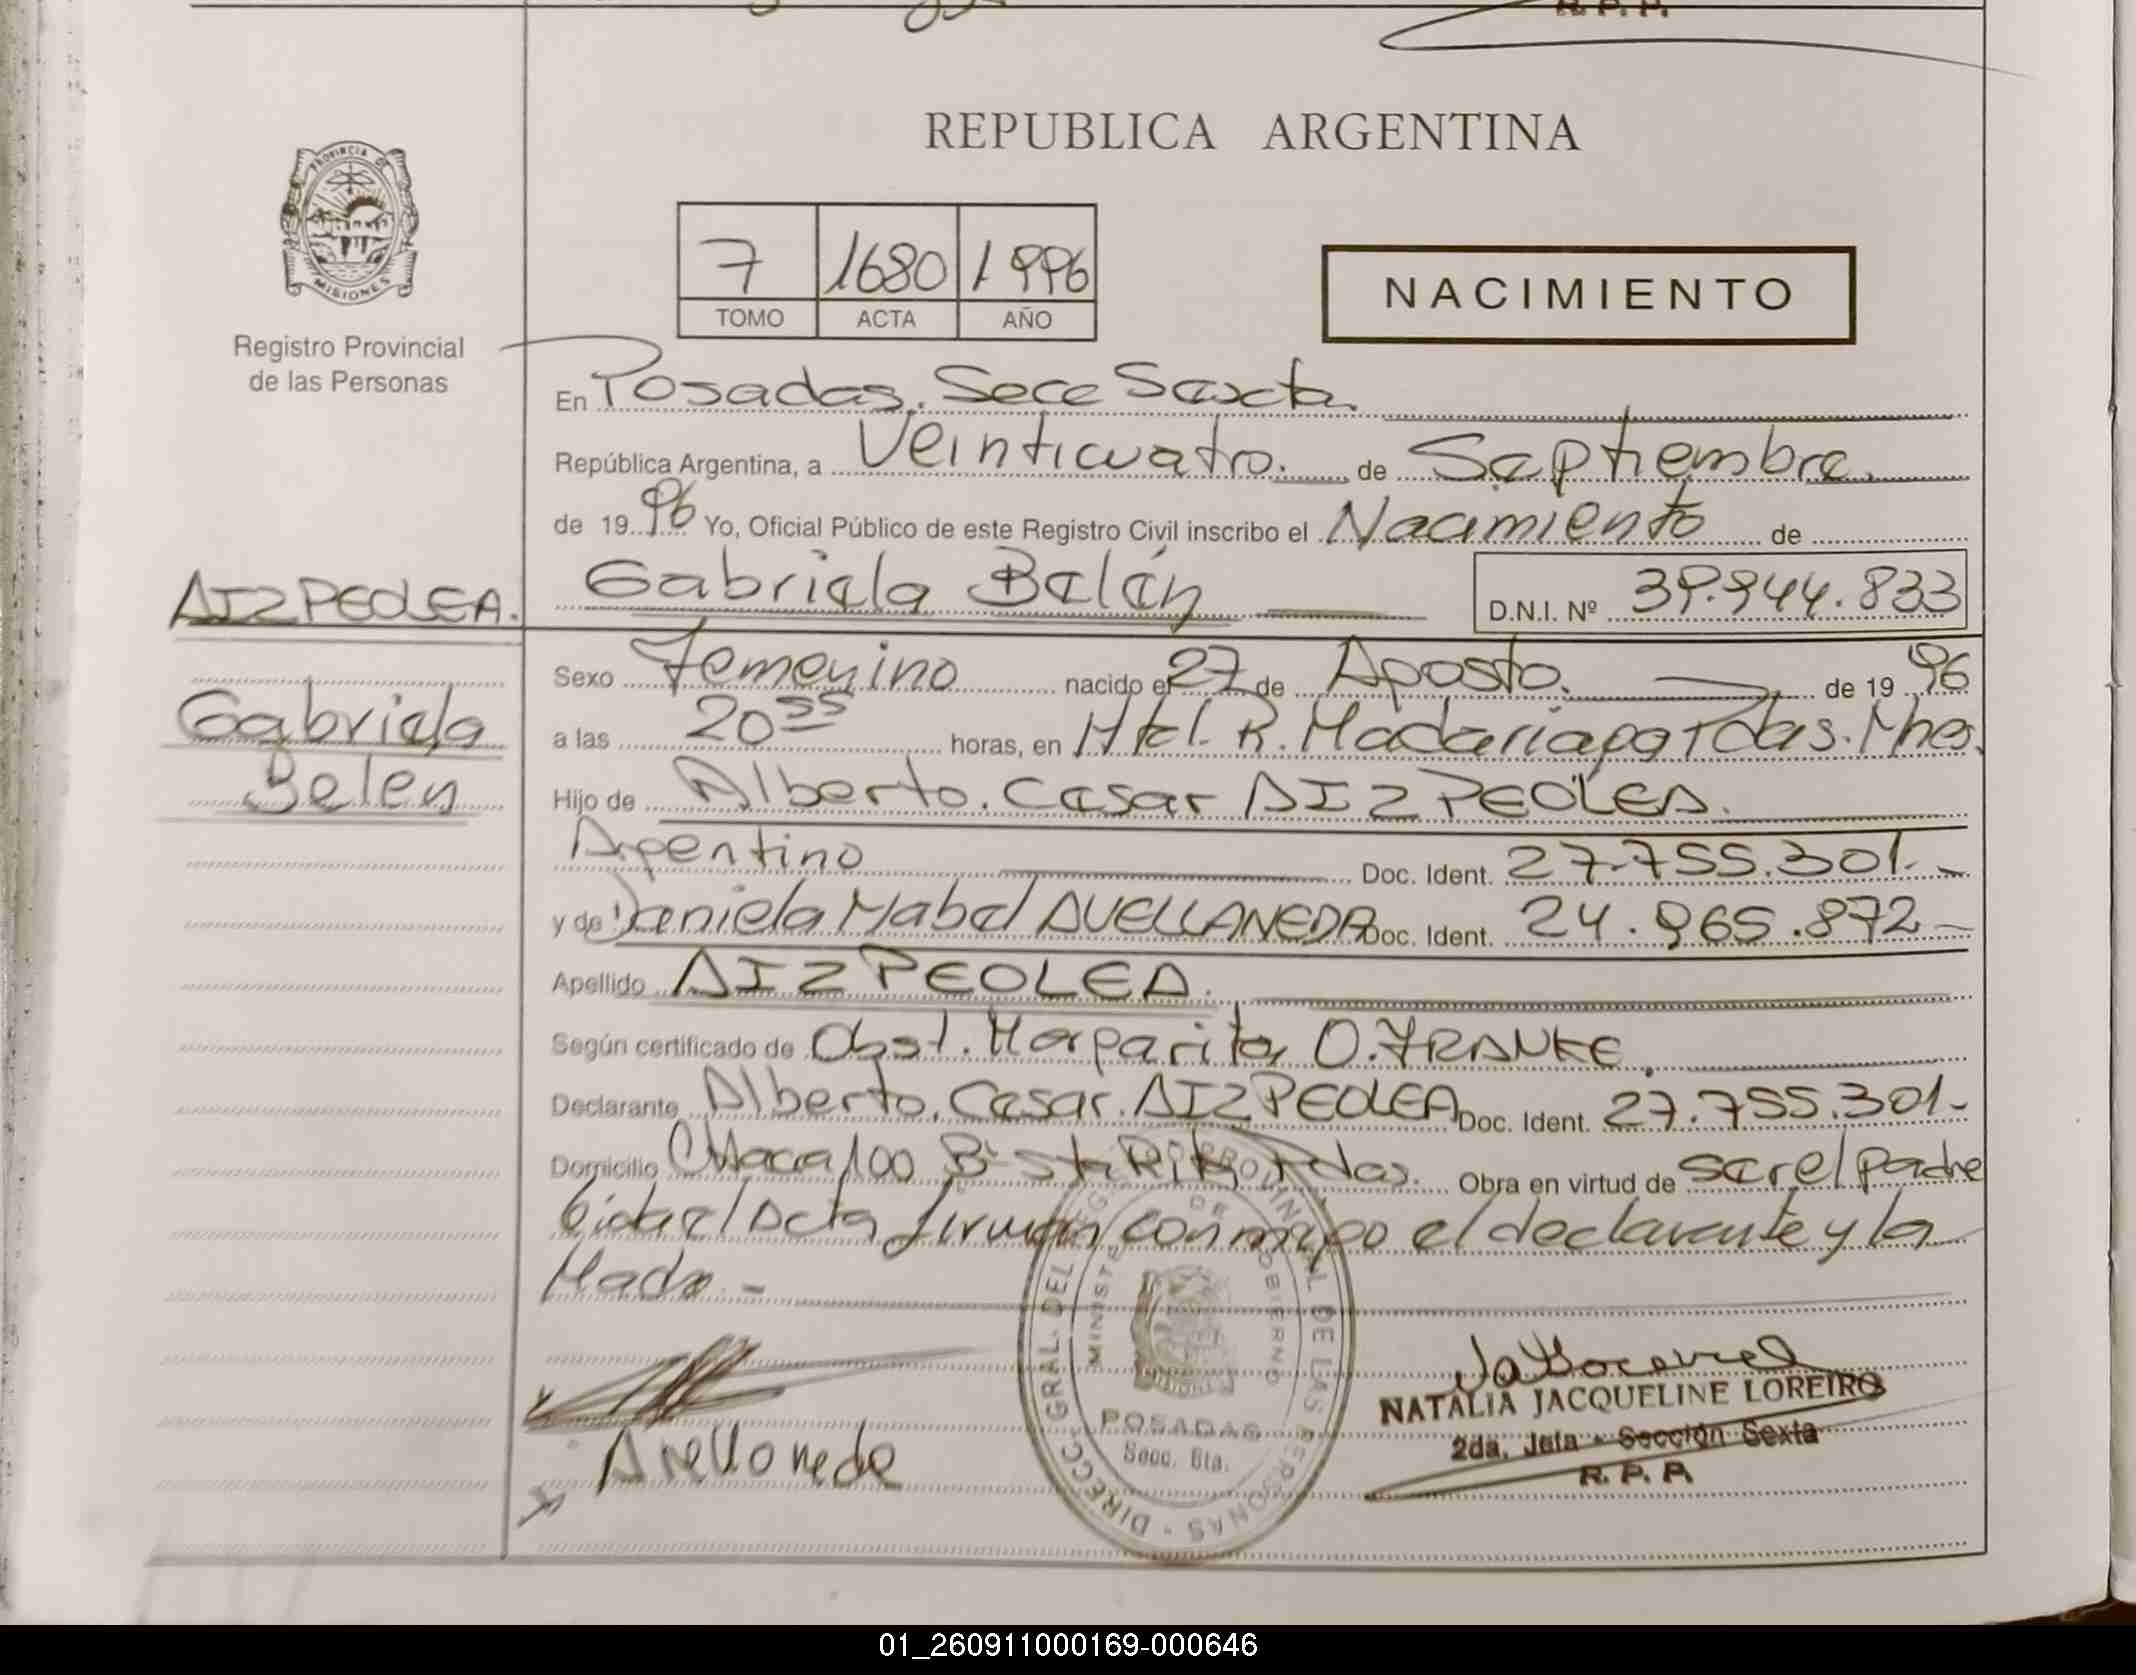 R. P. P.
REPUBLICA ARGENTINA
PROVINCIA DE
MISIONES
Registro Provincial
de las Personas
7 1680 1996
TOMO ACTA AÑO
NACIMIENTO
En Posadas. Secc Sexta.
República Argentina, a Veinticuatro. de Septiembre.
de 19 96 Yo, Oficial Público de este Registro Civil inscribo el Nacimiento de
AIZPEOLEA.
Gabriela Belén D.N.I. Nº 39.944.833
Gabriela
Belen
Sexo Femenino nacido el 27 de Agosto. de 19 96
a las 20 55 horas, en Htal. R. Madariaga Pdas. Mnes.
Hijo de Alberto. Cesar AIZPEOLEA.
Argentino Doc. Ident. 27.755.301.-
y de Daniela Mabel AVELLANEDA Doc. Ident. 24.965.872-
Apellido AIZPEOLEA.
Según certificado de Obst. Margarita O. FRANKE.
Declarante Alberto. Cesar. AIZPEOLEA Doc. Ident. 27.755.301-
Domicilio Chacra 100 Bº Sta Rita Pdas. Obra en virtud de ser el padre
Leida el Acta firman conmigo el declarante y la
Madre.-
DIRECC. GRAL. DEL REG. PROVINCIAL DE LAS PERSONAS
MINISTERIO DE GOBIERNO
POSADAS
Secc. 6ta.
Avellaneda
NATALIA JACQUELINE LOREIRO
2da. Jefa - Sección Sexta
R. P. P.
01_260911000169-000646